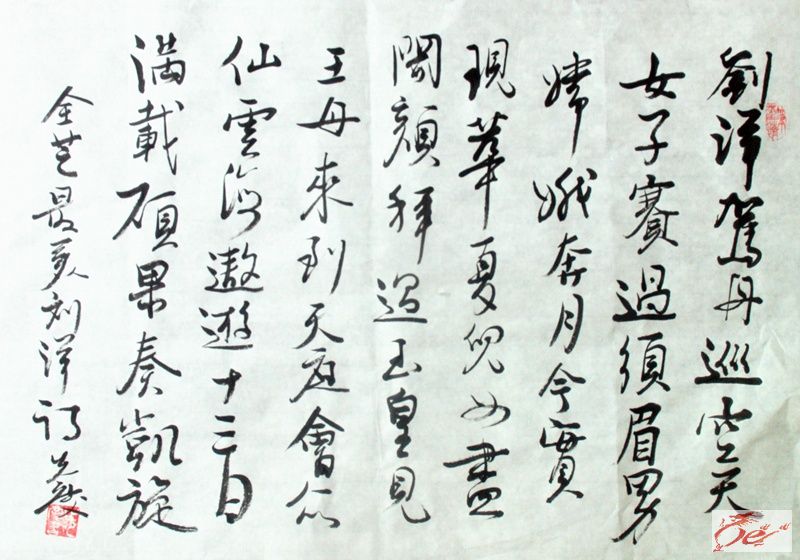 劉洋駕舟巡空天
女子賽過須眉男
嫦娥奔月今實
現華夏兒女盡
開顏拜過玉皇見
王母來到天庭會众
仙雲海遨遊十三日
滿載碩果奏凱旋
最美刘洋诗